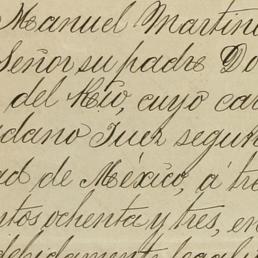 Manuel Martin
Señor su padre Do
del Río, cuyo car
dano Juez segun
ad de México, á tre
ntos ochenta y tres, en
debidamente legali